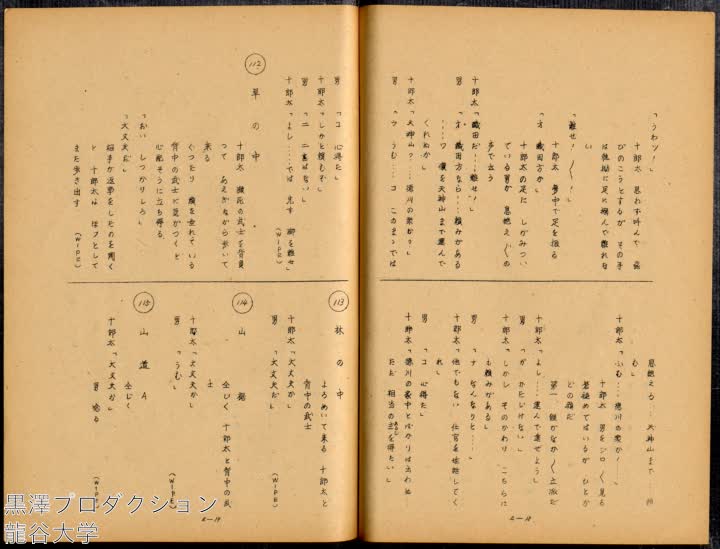 「うわッ!」
十郎太 思わず叫んで 飛
びのこうとするが その手
は執拗に足に掴んで離れな
い
「離せ!〳〵!」
十郎太 夢中で足を振る
「オ 織田方か」
十郎太の足に しがみつい
ている男が 息絶え〳〵の
声で云う
十郎太「織田だ…離せ!」
男 「オ 織田方なら…頼みがある
…ワ 儂を天神山まで運んで
くれぬか」
十郎太「天神山?…徳川の家か?」
男 「ウ うむ…コ このまゝでは
息絶える… 天神山まで 頼
む」
十郎太「ふむ…徳川の家か!」
十郎太 男をジロ〳〵見る
蒼褪めてはいるが ひとか
どの顔だ
第一 鎧がなか〳〵立派だ
十郎太「よし…運んで進ぜよう」
男 「カ かたじけない」
十郎太「しかし そのかわり こちらに
も頼みがある」
男 「ナ なんなりと…」
十郎太「他でもない 仕官を世話してく
れ」
男 「コ 心得た」
十郎太「徳川の家中とばかりは云わぬ
ただ 相当の主を得たい」
男 「コ 心得た」
十郎太「しかと頼むぞ」
男 「ニ 二言はない」
十郎太「よし…では 先ず 脚を離せ」
(WIPE)
112 草の中
十郎太 瀕死の武士を背負
って あえぎながら歩いて
来る
ぐったり 頭を垂れている
背中の武士に気がつくと
心配そうに立ち停る
「おい しっかりしろ」
「大丈夫だ」
相手が返事をしたのを聞く
と 十郎太は ほッとして
また歩き出す
(WIPE)
113 林の中
よろめいて来る 十郎太と
背中の武士
十郎太「大丈夫か」
男 「大丈夫だ」
(WIPE)
114 山麓
全じく 十郎太と背中の武
士
十郎太「大丈夫か」
男 「うむ」
(WIPE)
115 山道 A
全じく
十郎太「大丈夫か」
男 唸る
(WIPE)
2—18
2—19
黒澤プロダクション
龍谷大学